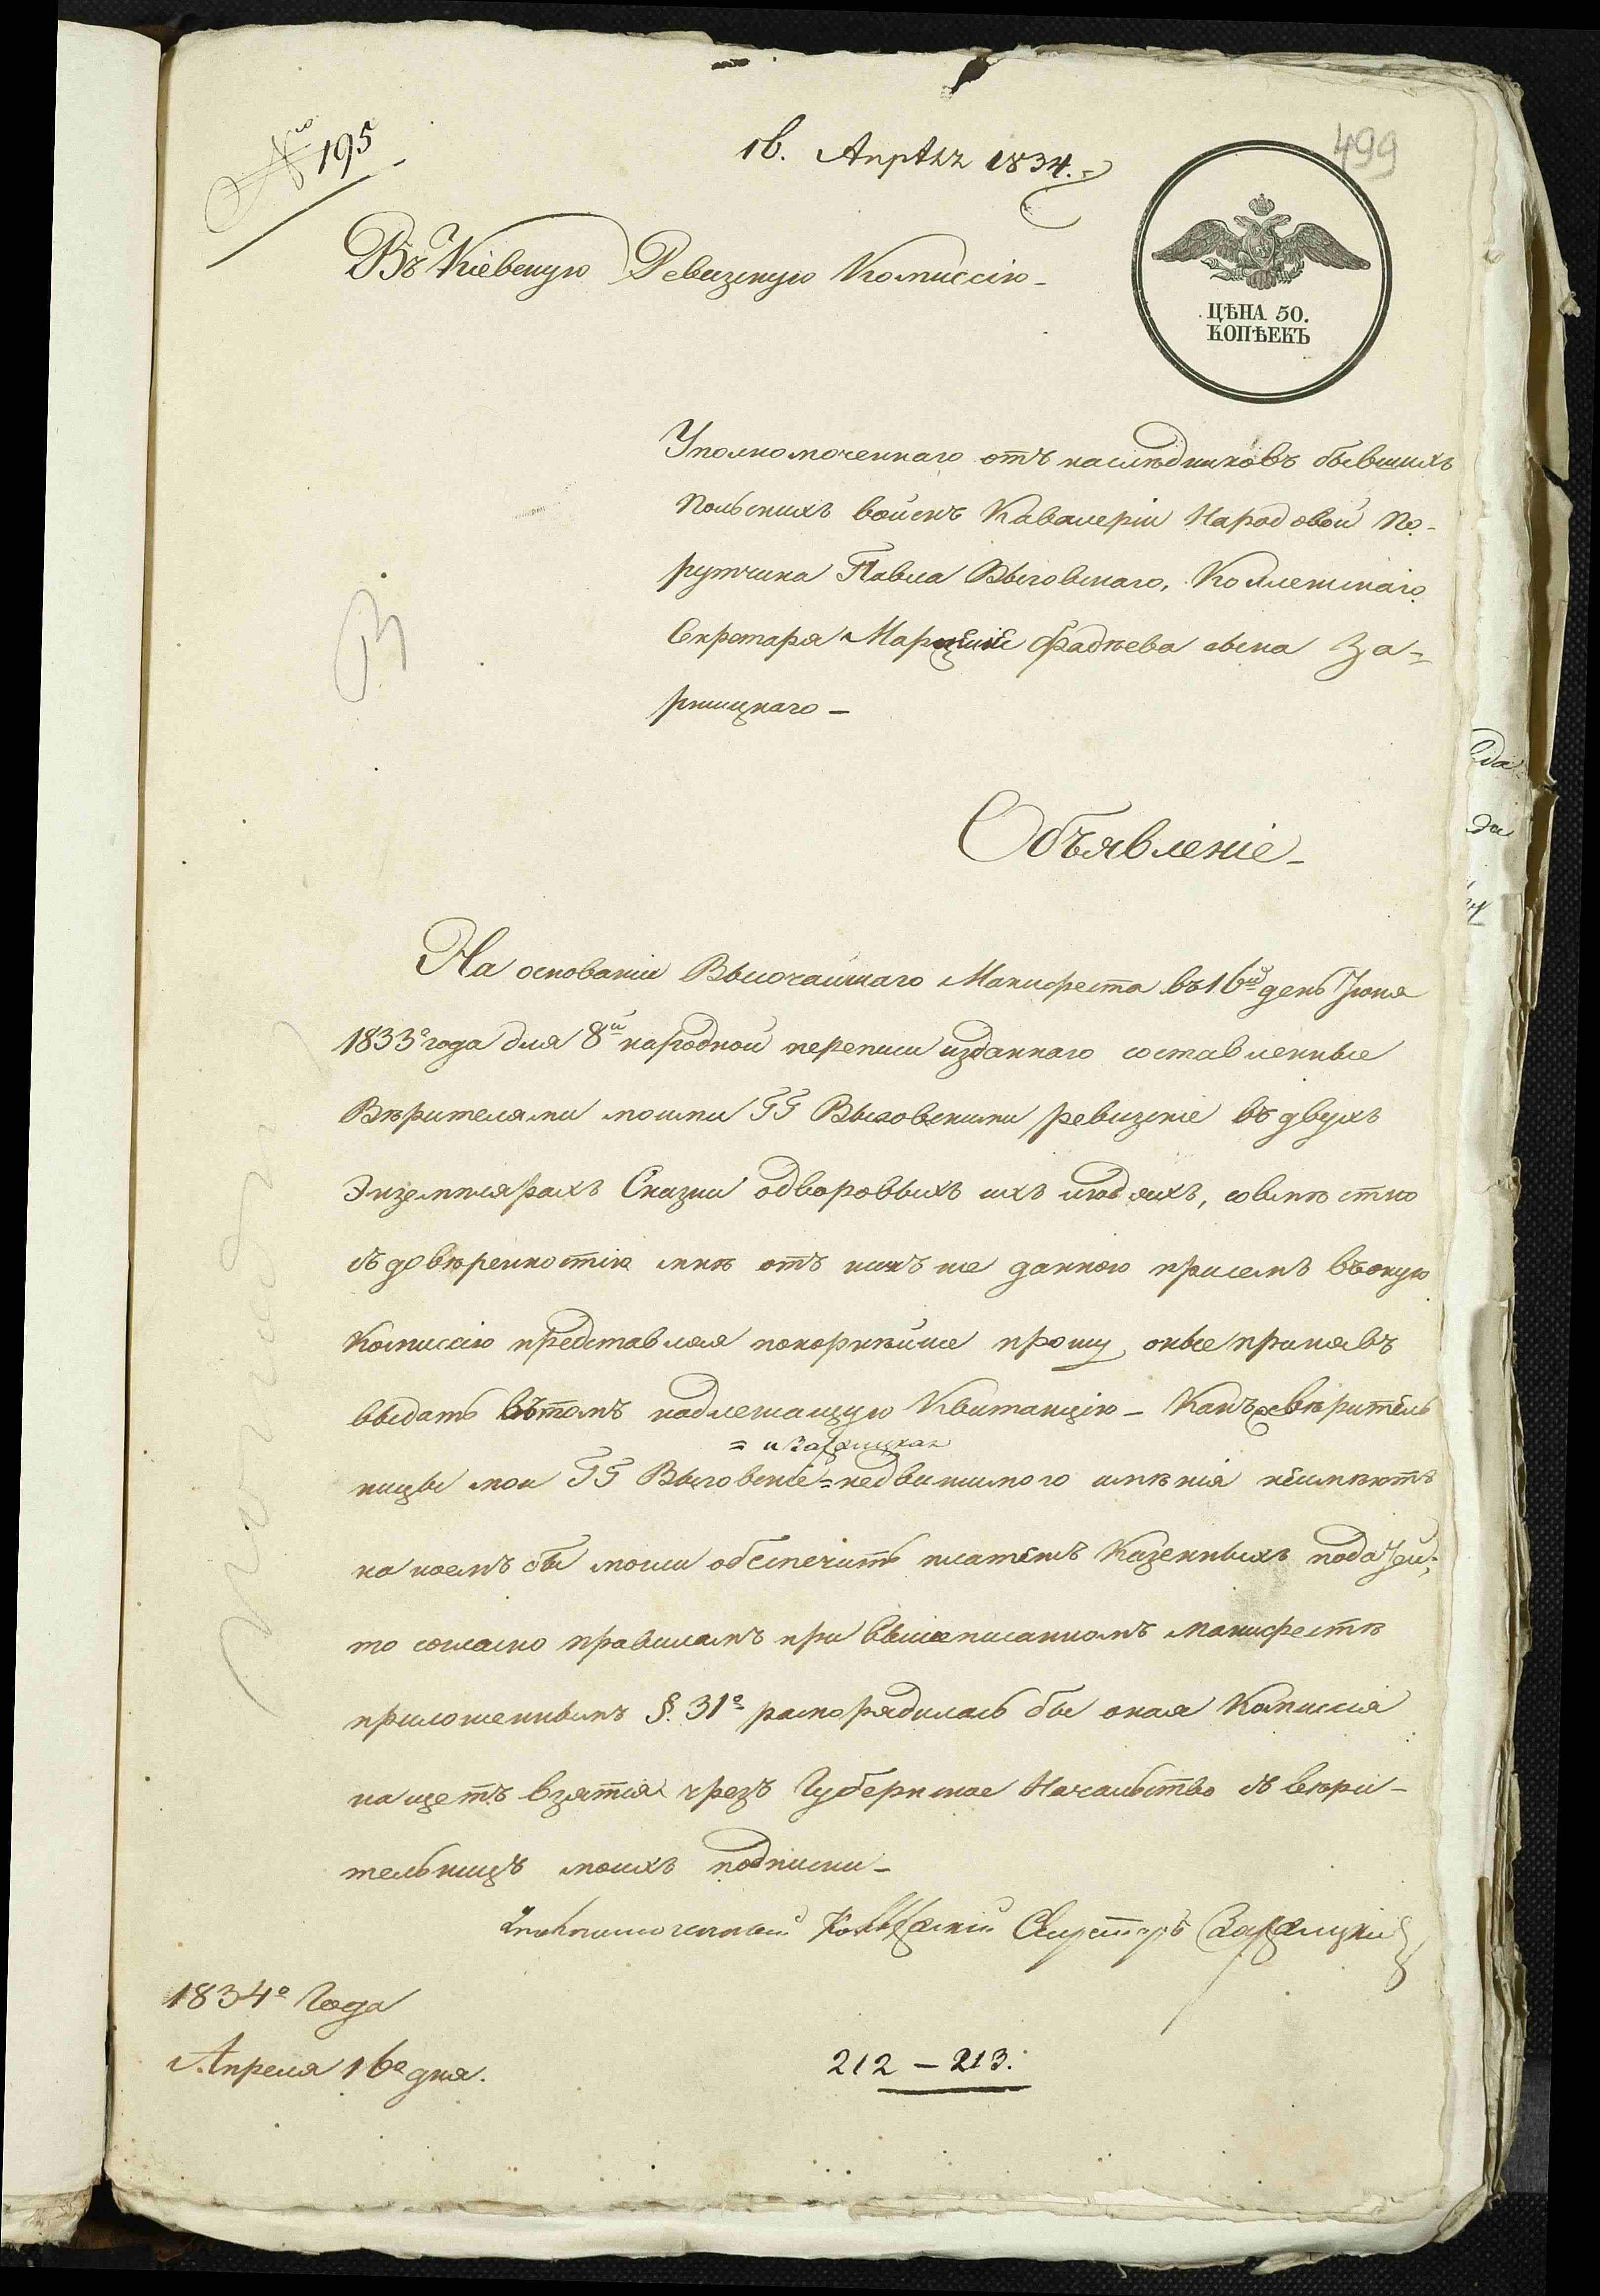 № 195
16. Апрѣля 1834.
499
Въ Кіевскую Ревизскую Коммиссію
ЦѢНА 50.
КОПѢЕКЪ
Уполномоченнаго отъ наслѣдниковъ бывшихъ
Польскихъ войскъ Кавалеріи Народовой По-
рутчика Павла Выговскаго, Коллежскаго
Секретаря Фадѣева сына За-
ржицкаго
Объявленіе
На основаніи Высочайшаго Манифеста въ 16й день Іюня
1833го года для 8й народной переписи изданнаго составленные
Вѣрителями моими ГГ Выговскими ревизскіе въ двухъ
Экземплярахъ Сказки одворовыхъ ихъ людяхъ, совмѣстно
съ довѣренностію мнѣ отъ нихъ же данною присемъ въ оную
Комиссію представляя покорнѣйше прошу, оные принявъ
выдать вътомъ надлежащую Квитанцію – Какъже вѣритель
= и Заржицкая
ницы мои ГГ Выговскіе = недвижимого имѣнія неимѣютъ
на коемъ бы могли обеспечить платежъ Казенныхъ податей;
то согласно правиламъ при вышеписанномъ манифестѣ
приложеннымъ §. 31о распорядилась бы оная Комиссія
на щетъ взятія чрезъ Губернское Начальство съ вѣри-
тельницъ моихъ подписки –
Уполномоченный Коллежскій Секретарь Заржицкій
1834о Года
Апреля 16о дня.
212 – 213.